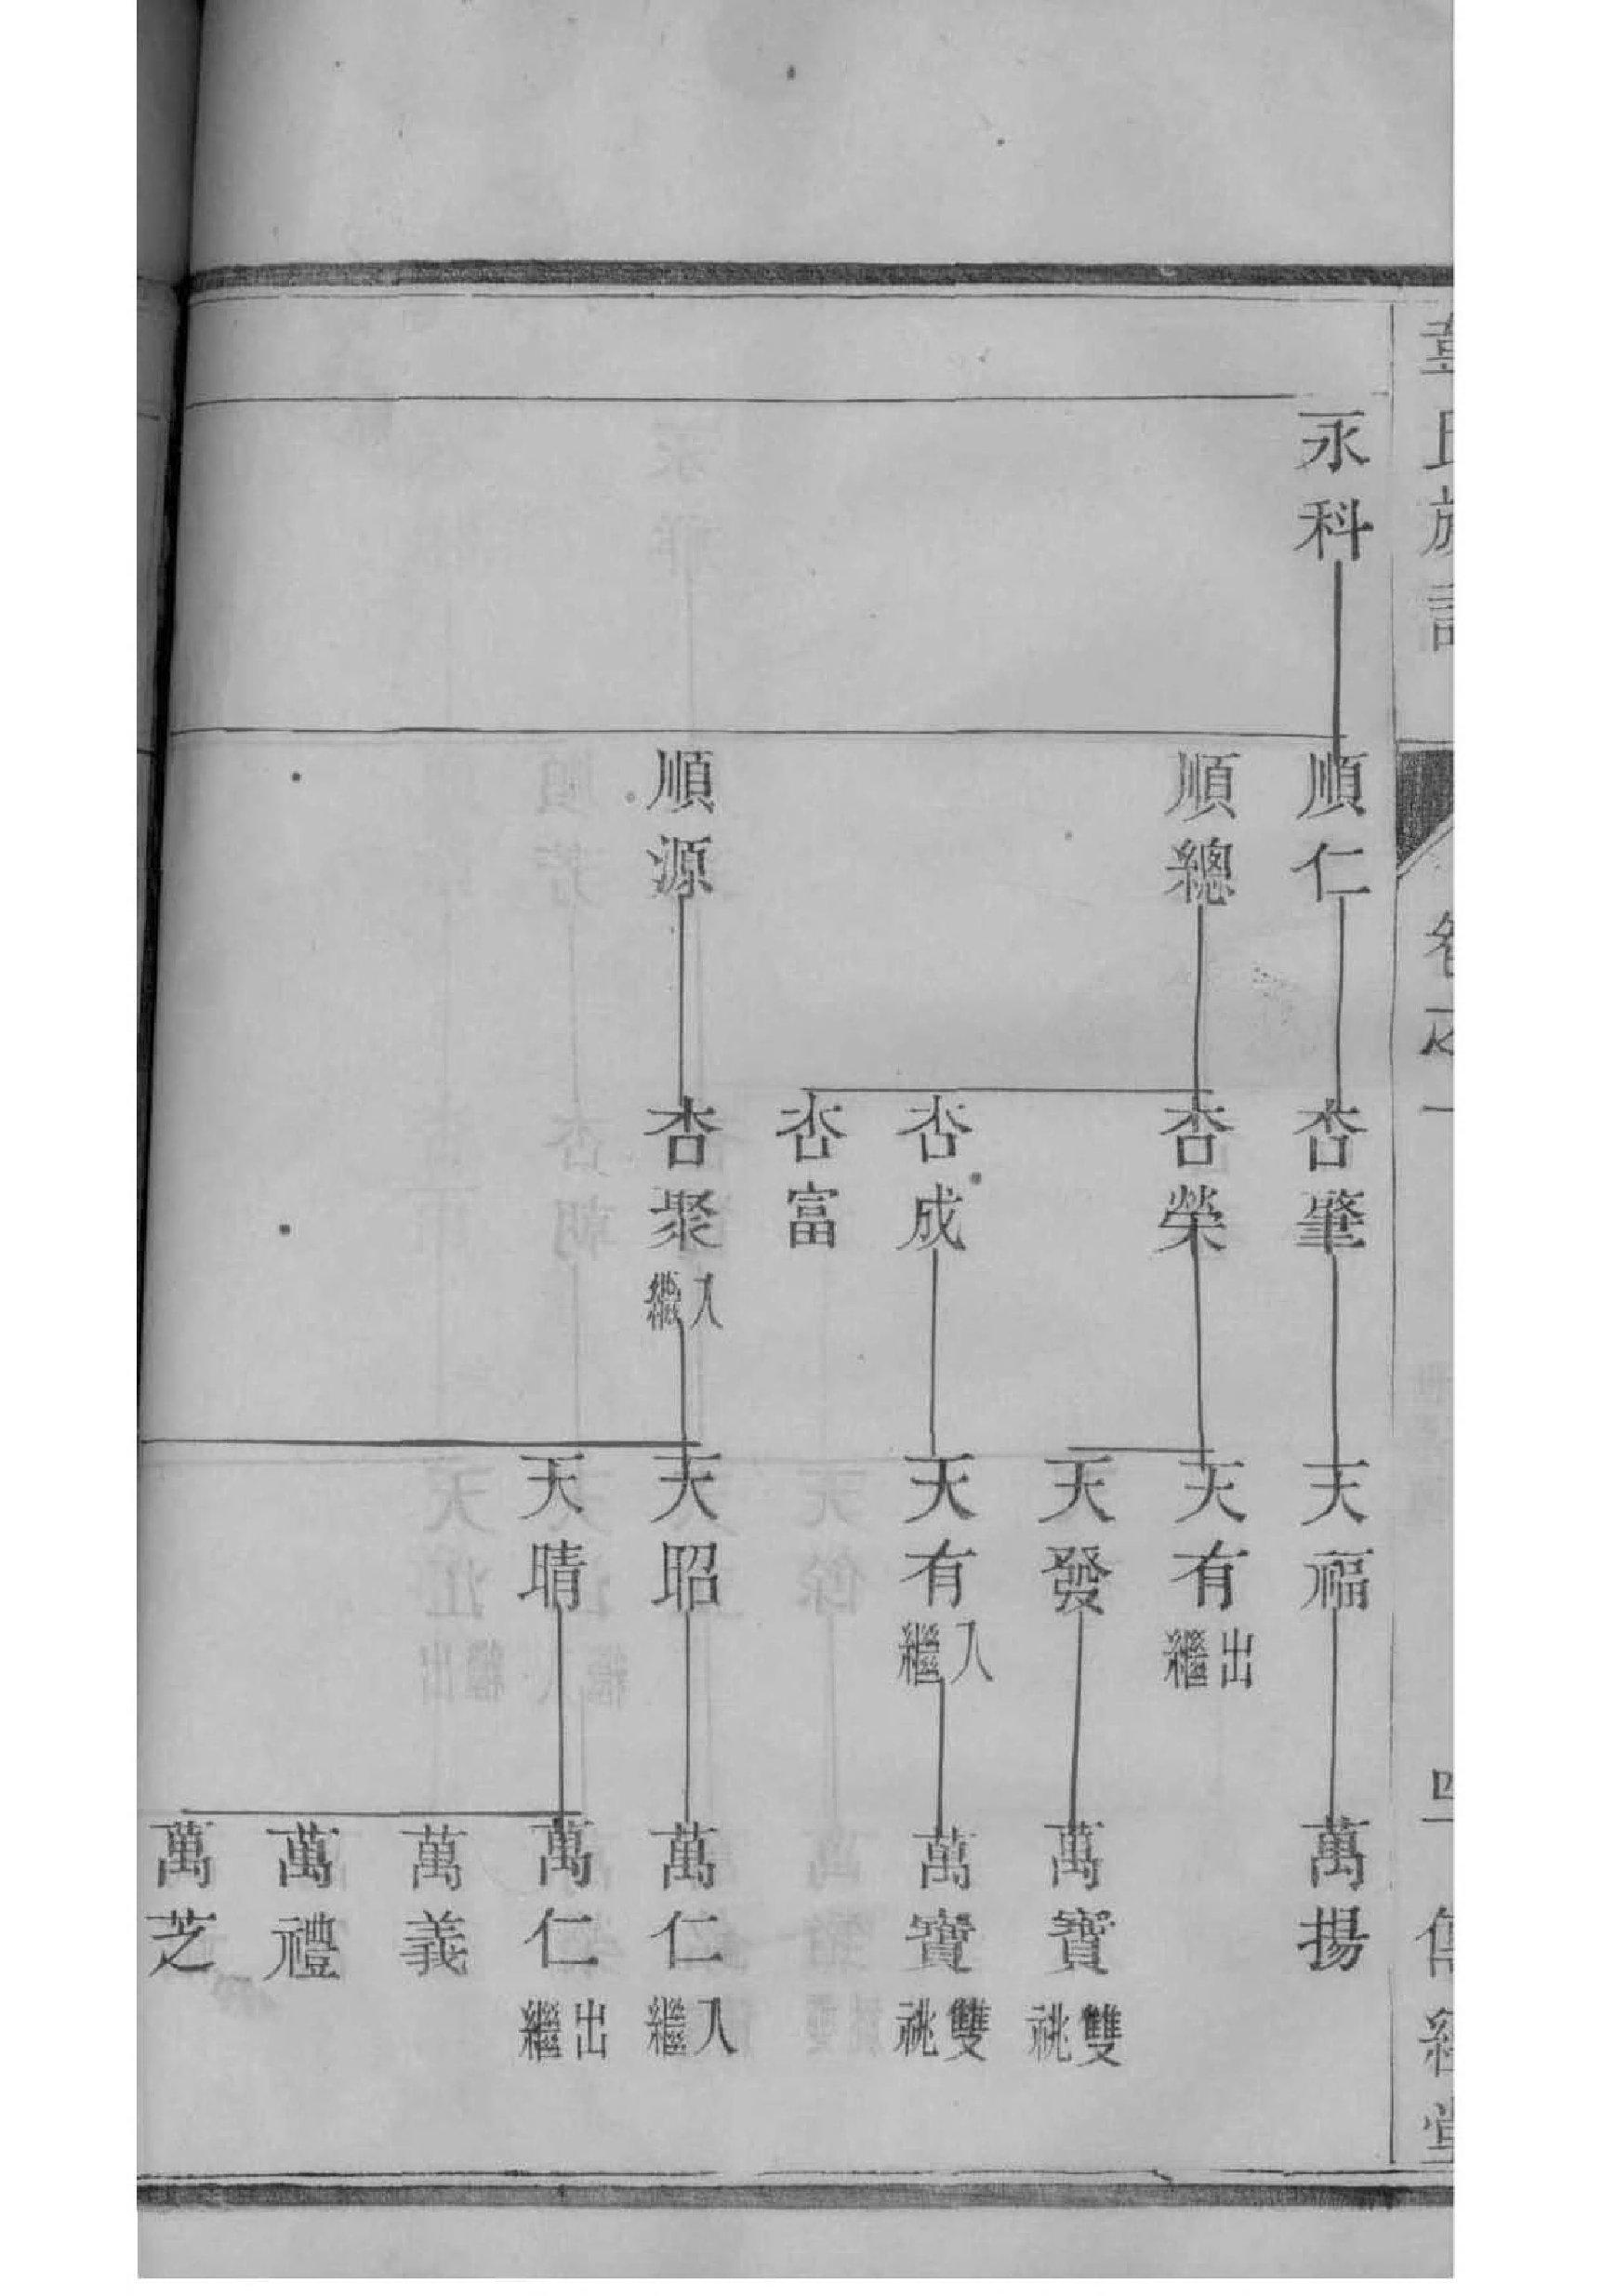 氏族譜
卷之一
永科
順仁
順總
順源
杏肇
杏榮
杏成
杏富
杏聚 入繼
天福
天有 出繼
天發
天有 入繼
天昭
天晴
萬揚
萬寶 雙祧
萬寶 雙祧
萬仁 入繼
萬仁 出繼
萬義
萬禮
萬芝